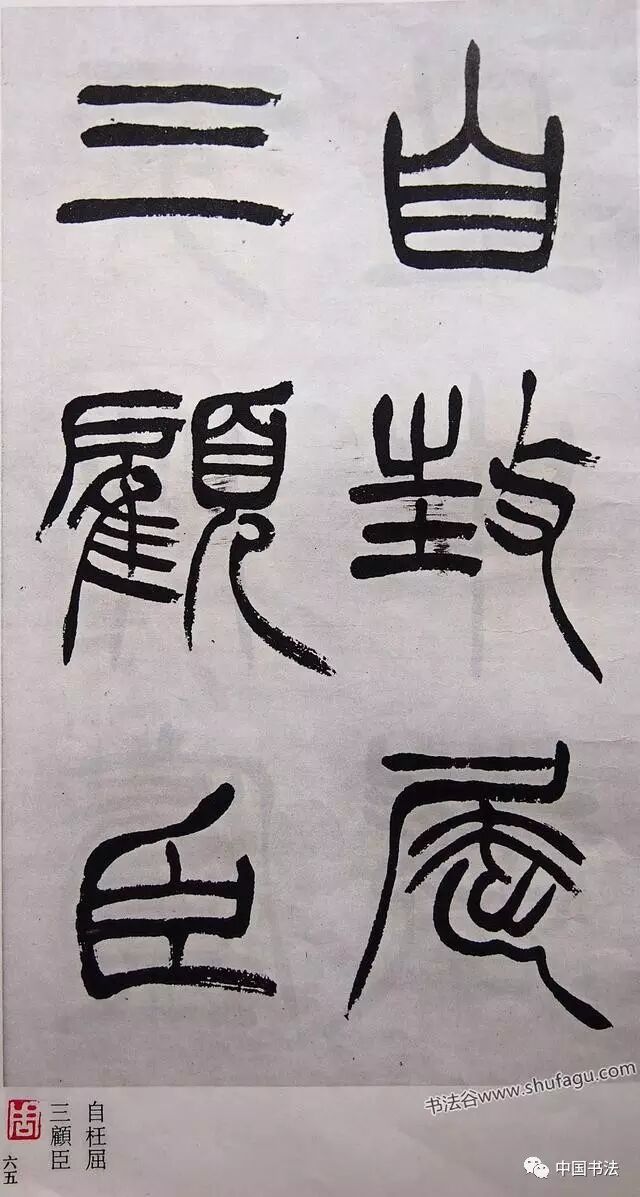 自枉屈
三顧臣
自枉屈
三顧臣
六五
书法谷www.shufagu.com
中国书法